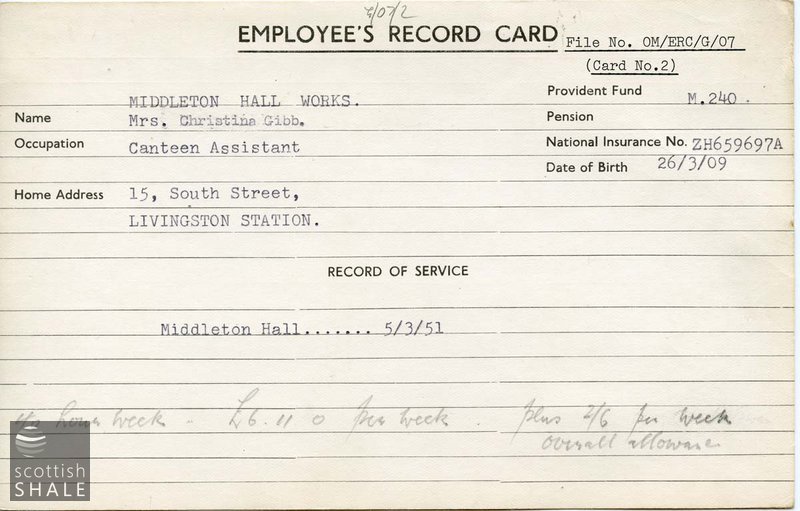 G/07/2
EMPLOYEE'S RECORD CARD
File No. OM/ERC/G/07
(Card No.2)
MIDDLETON HALL WORKS.
Provident Fund M.240.
Name Mrs. Christina Gibb.
Pension
Occupation Canteen Assistant
National Insurance No. ZH659697A
Date of Birth 26/3/09
Home Address 15, South Street,
LIVINGSTON STATION.
RECORD OF SERVICE
Middleton Hall....... 5/3/51
hour week - £6. 11 0 per week. plus 2/6 per week
overall allowance
scottish
SHALE